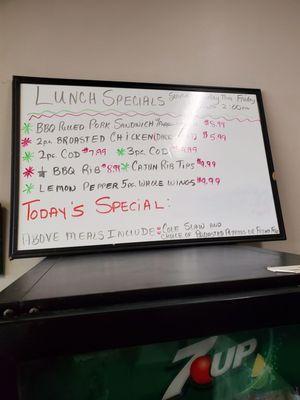 LUNCH SPECIALS
Friday
2:00pm
BBQ PULLED PORK SANDWICH $5.99
2pc. BROASTED CHICKEN $5.99
2pc COD $7.99 3pc. COD $9.99
BBQ RIB $8.99 CAJUN RIB TIPS $9.99
LEMON PEPPER 5pc. WHOLE WINGS $9.99
TODAY'S SPECIAL:
ABOVE MEALS INCLUDE: COLE SLAW AND
CHOICE OF POTATOES OR
7UP